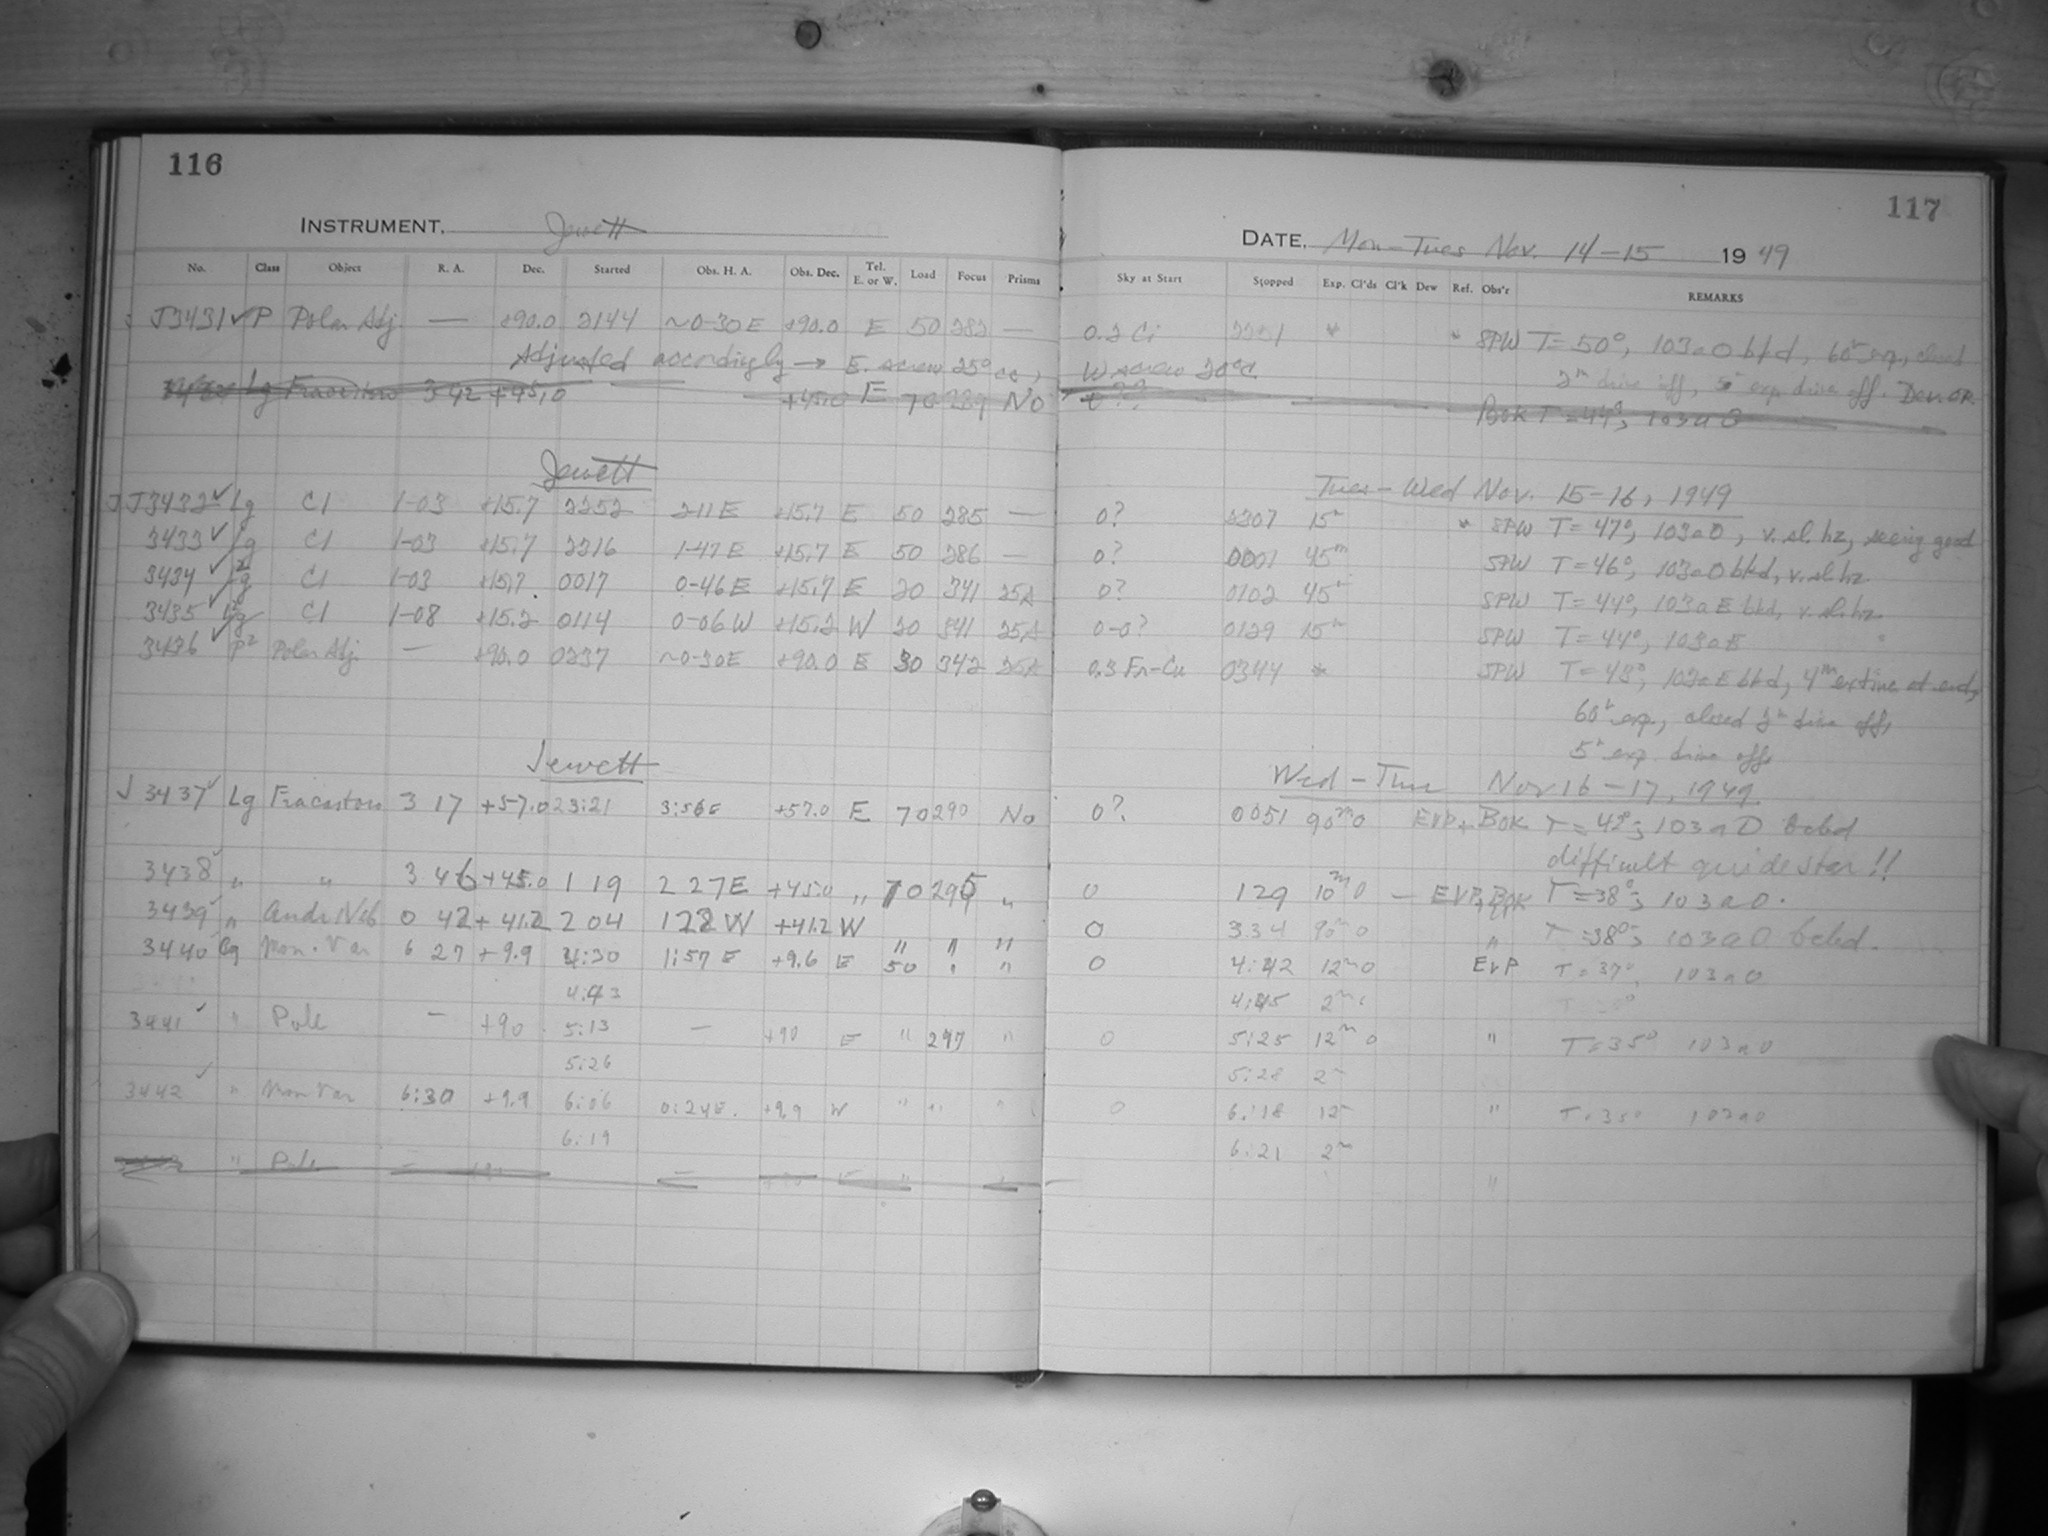 116
INSTRUMENT. Jewett
No. Class Object R. A. Dec. Started Obs. H. A. Obs. Dec. Tel. E. or W. Load Focus Prisms
J3431 ✓ P Polar Adj. — +90.0 2144 ~0-30E +90.0 E 50 282 —
Adjusted accordingly → E. screw 25° cc,
Lg Fracastoro 3 42 +45.0 +45.0 E 70 289 No
Jewett
J J3432 ✓ Lg C1 1-03 +15.7 2252 2-11 E +15.7 E 50 285 —
3433 ✓ Lg C1 1-03 +15.7 2316 1-47 E +15.7 E 50 286 —
3434 ✓ C1 1-03 +15.7 0017 0-46 E +15.7 E 20 341 25A
3435 ✓ C1 1-08 +15.2 0114 0-06 W +15.2 W 20 341 25A
3436 ✓ P² Polar Adj. — +90.0 0237 ~0-30E +90.0 E 30 342 25A
Jewett
J 3437 ✓ Lg Fracastoro 3 17 +57.0 23:21 3:56E +57.0 E 70 290 No
3438 ✓ " " 3 46 +45.0 1 19 2 27E +45.0 " 70 295 "
3439 ✓ " Andr Neb 0 42 +41.2 2 04 1 22 W +41.2 W " " "
3440 ✓ Cg Mon. Var 6 27 +9.9 4:30 1:57 E +9.6 E 50 " "
4:43
3441 ✓ " Pole — +90 5:13 — +90 E " 297 "
5:26
3442 ✓ " Mon Var 6:30 +9.9 6:06 0:24E. +9.9 W " " "
6:19
" Pole
117
DATE. Mon–Tues Nov. 14–15 1949
Sky at Start Stopped Exp. Cl'ds Cl'k Dew Ref. Obs'r REMARKS
0.2 Ci * * SPW T=50°, 103aO bkd, 60s exp., closed
W screw 20°c.
2m drive off, 5s exp drive off. Dev. OK
BOK T=44°, 103aO
Tues–Wed Nov. 15–16, 1949
0? 2307 15m * SPW T=47°, 103aO, v. sl. hz, seeing good
0? 0001 45m SPW T=46°, 103aO bkd, v. sl. hz.
0? 0102 45m SPW T=44°, 103aE bkd, v. sl. hz.
0-0? 0129 15m SPW T=44°, 103aE
0.3 Fr-Cu 0344 * SPW T=43°, 103aE bkd, 4m extine at end,
60s exp., closed 2m drive off,
5s exp. drive off.
Wed – Thur Nov 16–17, 1949.
0? 0051 90m 0 EVP + BOK T=42°; 103aO bcbd
difficult guide star!!
0 129 10m 0 — EVP + BOK T=38°; 103aO.
0 334 90m 0 " T=38°; 103aO bcbd.
0 4:42 12m 0 EVP T=37° 103aO
4:45 2m
0 5:25 12m 0 " T=35° 103aO
5:28 2m
0 6:18 12m " T=35° 103aO
6:21 2m
"